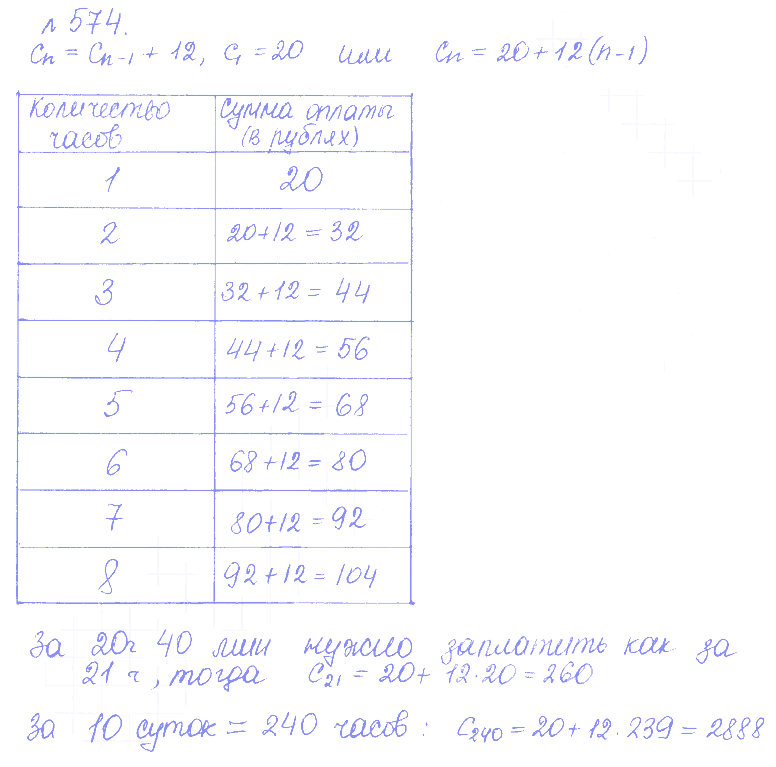 № 574.
Cn = Cn-1 + 12, C1 = 20 или Cn = 20 + 12(n-1)
Количество часов
Сумма оплаты (в рублях)
1 20
2 20+12 = 32
3 32+12 = 44
4 44+12 = 56
5 56+12 = 68
6 68+12 = 80
7 80+12 = 92
8 92+12 = 104
За 20ч 40 мин нужно заплатить как за
21 ч, тогда C21 = 20 + 12·20 = 260
За 10 суток = 240 часов: C240 = 20 + 12·239 = 2888